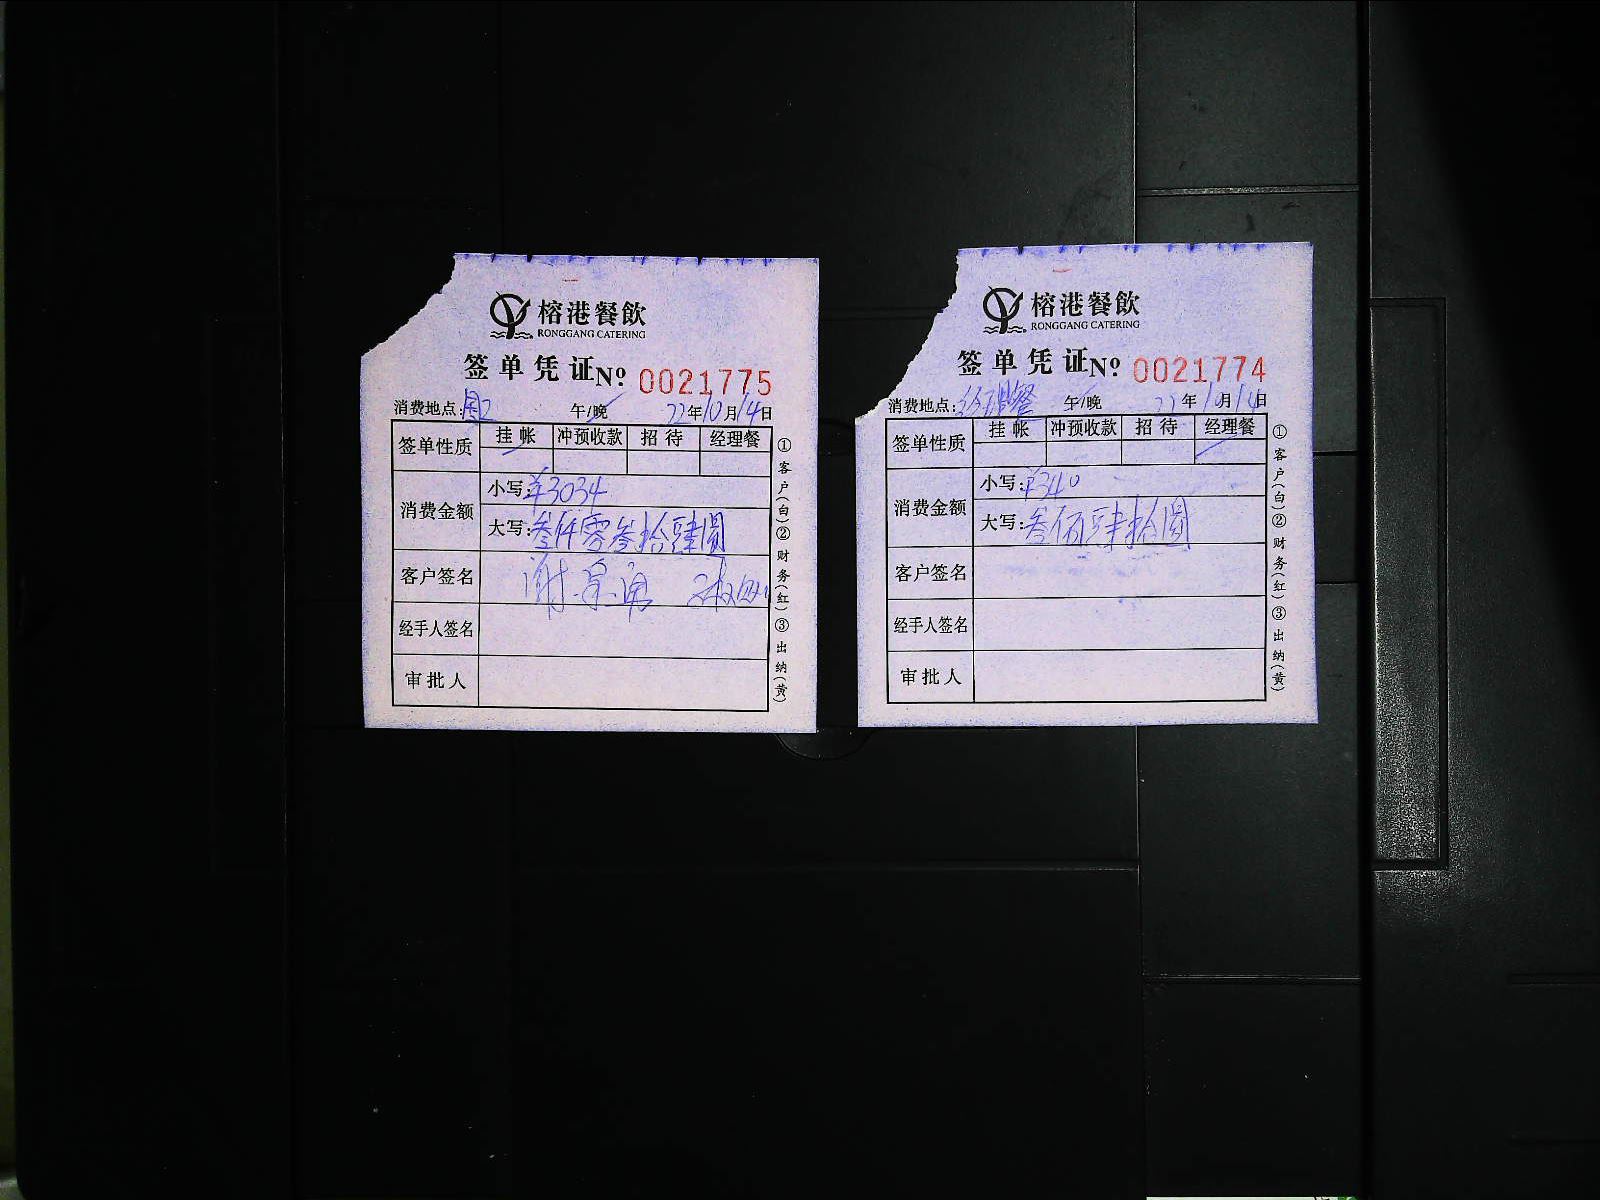 榕港餐飲
RONGGANG CATERING
签单凭证 Nº 0021775
消费地点: 午/晚 22年10月14日
签单性质 挂帐 冲预收款 招待 经理餐
消费金额 小写:¥3034
大写:叁仟零叁拾肆圆
客户签名
经手人签名
审批人
①客户(白)②财务(红)③出纳(黄)
榕港餐飲
RONGGANG CATERING
签单凭证 Nº 0021774
消费地点:经理餐 午/晚 22年10月14日
签单性质 挂帐 冲预收款 招待 经理餐
消费金额 小写:¥340
大写:叁佰肆拾圆
客户签名
经手人签名
审批人
①客户(白)②财务(红)③出纳(黄)